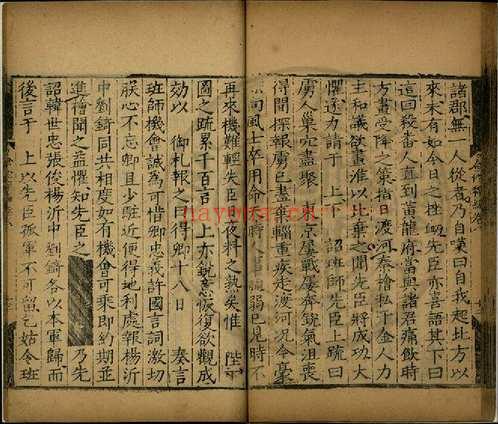 諸郡無一人從者乃自嘆曰自我起北方以
來未有如今日之挫衂先臣亦喜語其下曰
這回殺番人直到黃龍府當與諸君痛飲時
方畫受降之策指日渡河秦檜私于金人力
主和議欲畫淮以北棄之聞先臣將成功大
懼遂力請于 上下 詔班師先臣上疏曰
虜人巢穴盡聚東京屢戰屢奔銳氣沮喪
得間探報虜已盡棄輜重疾走渡河況今豪
向風士卒用命時人弱已見時不
再來機難輕失臣日夜料之熟矣惟 陛下
圖之疏累千百言上亦銳意恢復欲觀成
効以 御札報之曰得卿十八日 奏言
班師機會誠為可惜卿忠義許國言詞激切
朕心不忘卿且少駐近便得地利處報楊沂
中劉錡同共相度如有機會可乘即約期並
進檜聞之益懼知先臣之 乃先
詔韓世忠張俊楊沂中劉錡各以本軍歸而
後言于 上以先臣孤軍不可留乞姑令班